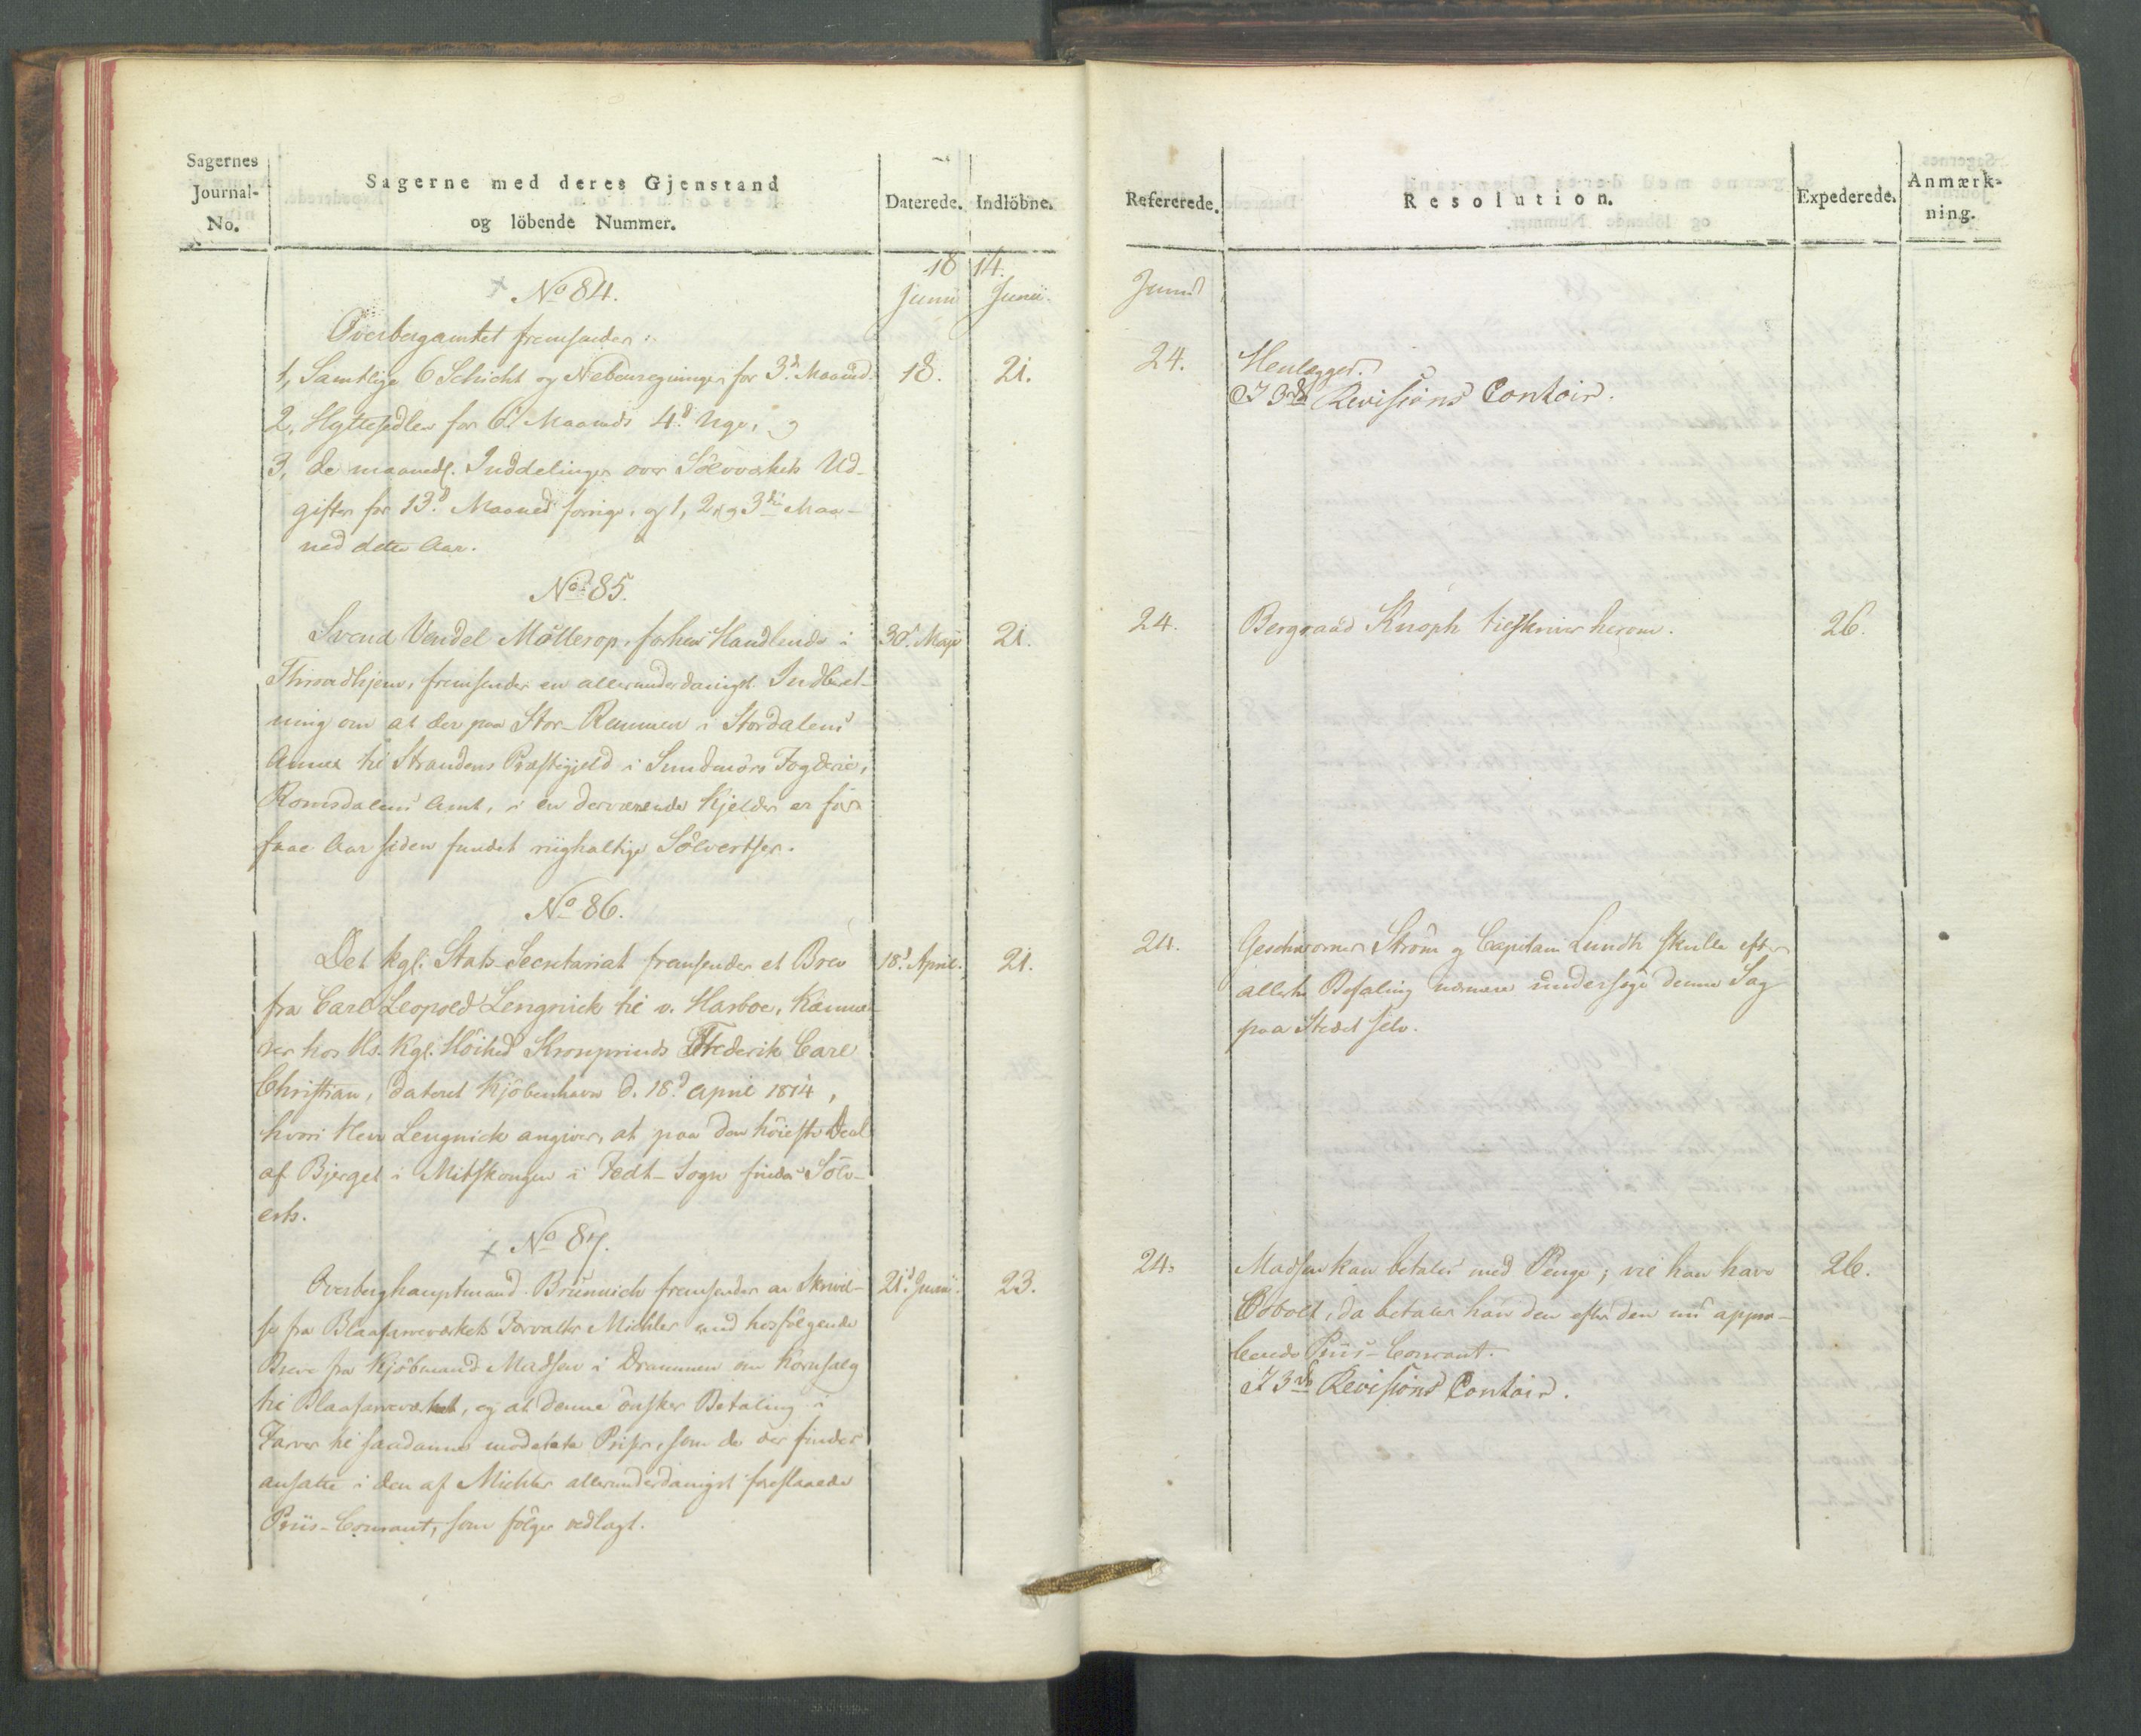 Sagernes
Journal-
No.
Sagerne med deres Gjenstand
og löbende Nummer.
Daterede.
Indlöbne.
Refererede.
Resolution.
Expederede.
Anmærk-
ning.
1814.
Junii
Junii.
Junii
No 84.
Overbergamtet fremsender:
1, Samtlige 6 Schicht og Nebenregninger for 3d Maaned.
18.
21.
24.
Henlægges.
I 3die Revisions Contoir.
2, Hyttesedler for 6te Maaneds 4d Uge, og
3, de maanedl. Inddelinger over Sölvværkets Ud-
gifter for 13d Maaned forrige, og 1, 2 og 3die Maa-
ned dette Aar.
No 85.
Svend Vendel Möllerop, forhen Handlende i
30. Maji
21.
24.
Bergraad Knoph tilskrives herom.
26.
Throndhjem, fremsender en allerunderdanigst Indberet-
ning om at der paa Stor-Remmen i Stordalens
Annex til Strandens Præstegjeld i Sundmörs Fogderie,
Romsdalens Amt, i en derværende Kjelder er for
faae Aar siden fundet riigholtige Sölvertser.
No 86.
Det kgl. Stats-Secretariat fremsender et Brev
18. April.
21.
24.
Geschworner Ström og Capitain Lundh skulle efter
fra Carl Leopold Lengnick til v. Harboe, Kamme-
allerh. Befaling nærmere undersöge denne Sag
rer hos Hs. Kgl. Höihed Kronprinds Frederik Carl
paa Stedet selv.
Christian, dateret Kjöbenhavn d. 18d April 1814,
hvori Herr Lengnick angiver, at paa den höieste Deel
af Bjerget i Mitskongen i Fedt-Sogn findes Sölv-
erts.
No 87.
Overberghauptmand Brünnich fremsender en Skrivel-
21. Junii.
23.
24.
Madsen kan betales med Penge; vil han have
26.
se fra Blaafarveværkets Forvalter Michler med hosfölgende
Cobolt, da betaler han den efter den nu appro-
Breve fra Kjöbmand Madsen i Drammen om Kornsalg
berede Priis-Courant.
til Blaafarveværket, og at denne önsker Betaling i
I 3die Revisions Contoir.
Farver til saadanne moderate Priser, som de der findes
ansatte i den af Michler allerunderdanigst foreslaaede
Priis-Courant, som fölger vedlagt.